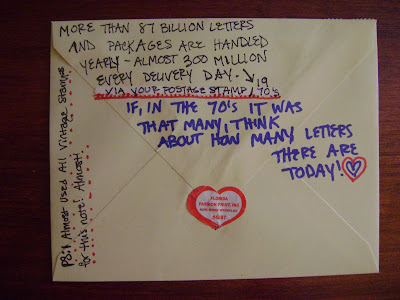 MORE THAN 87 BILLION LETTERS
AND PACKAGES ARE HANDLED
YEARLY - ALMOST 300 MILLION
EVERY DELIVERY DAY. 19
VIA YOUR POSTAGE STAMP / 70's
IF, IN THE 70's IT WAS
THAT MANY, THINK
ABOUT HOW MANY LETTERS
THERE ARE
TODAY!
PS: I Almost Used All Vintage Stamps
for this note! Almost!
FLORIDA
PASSION FRUIT, INC